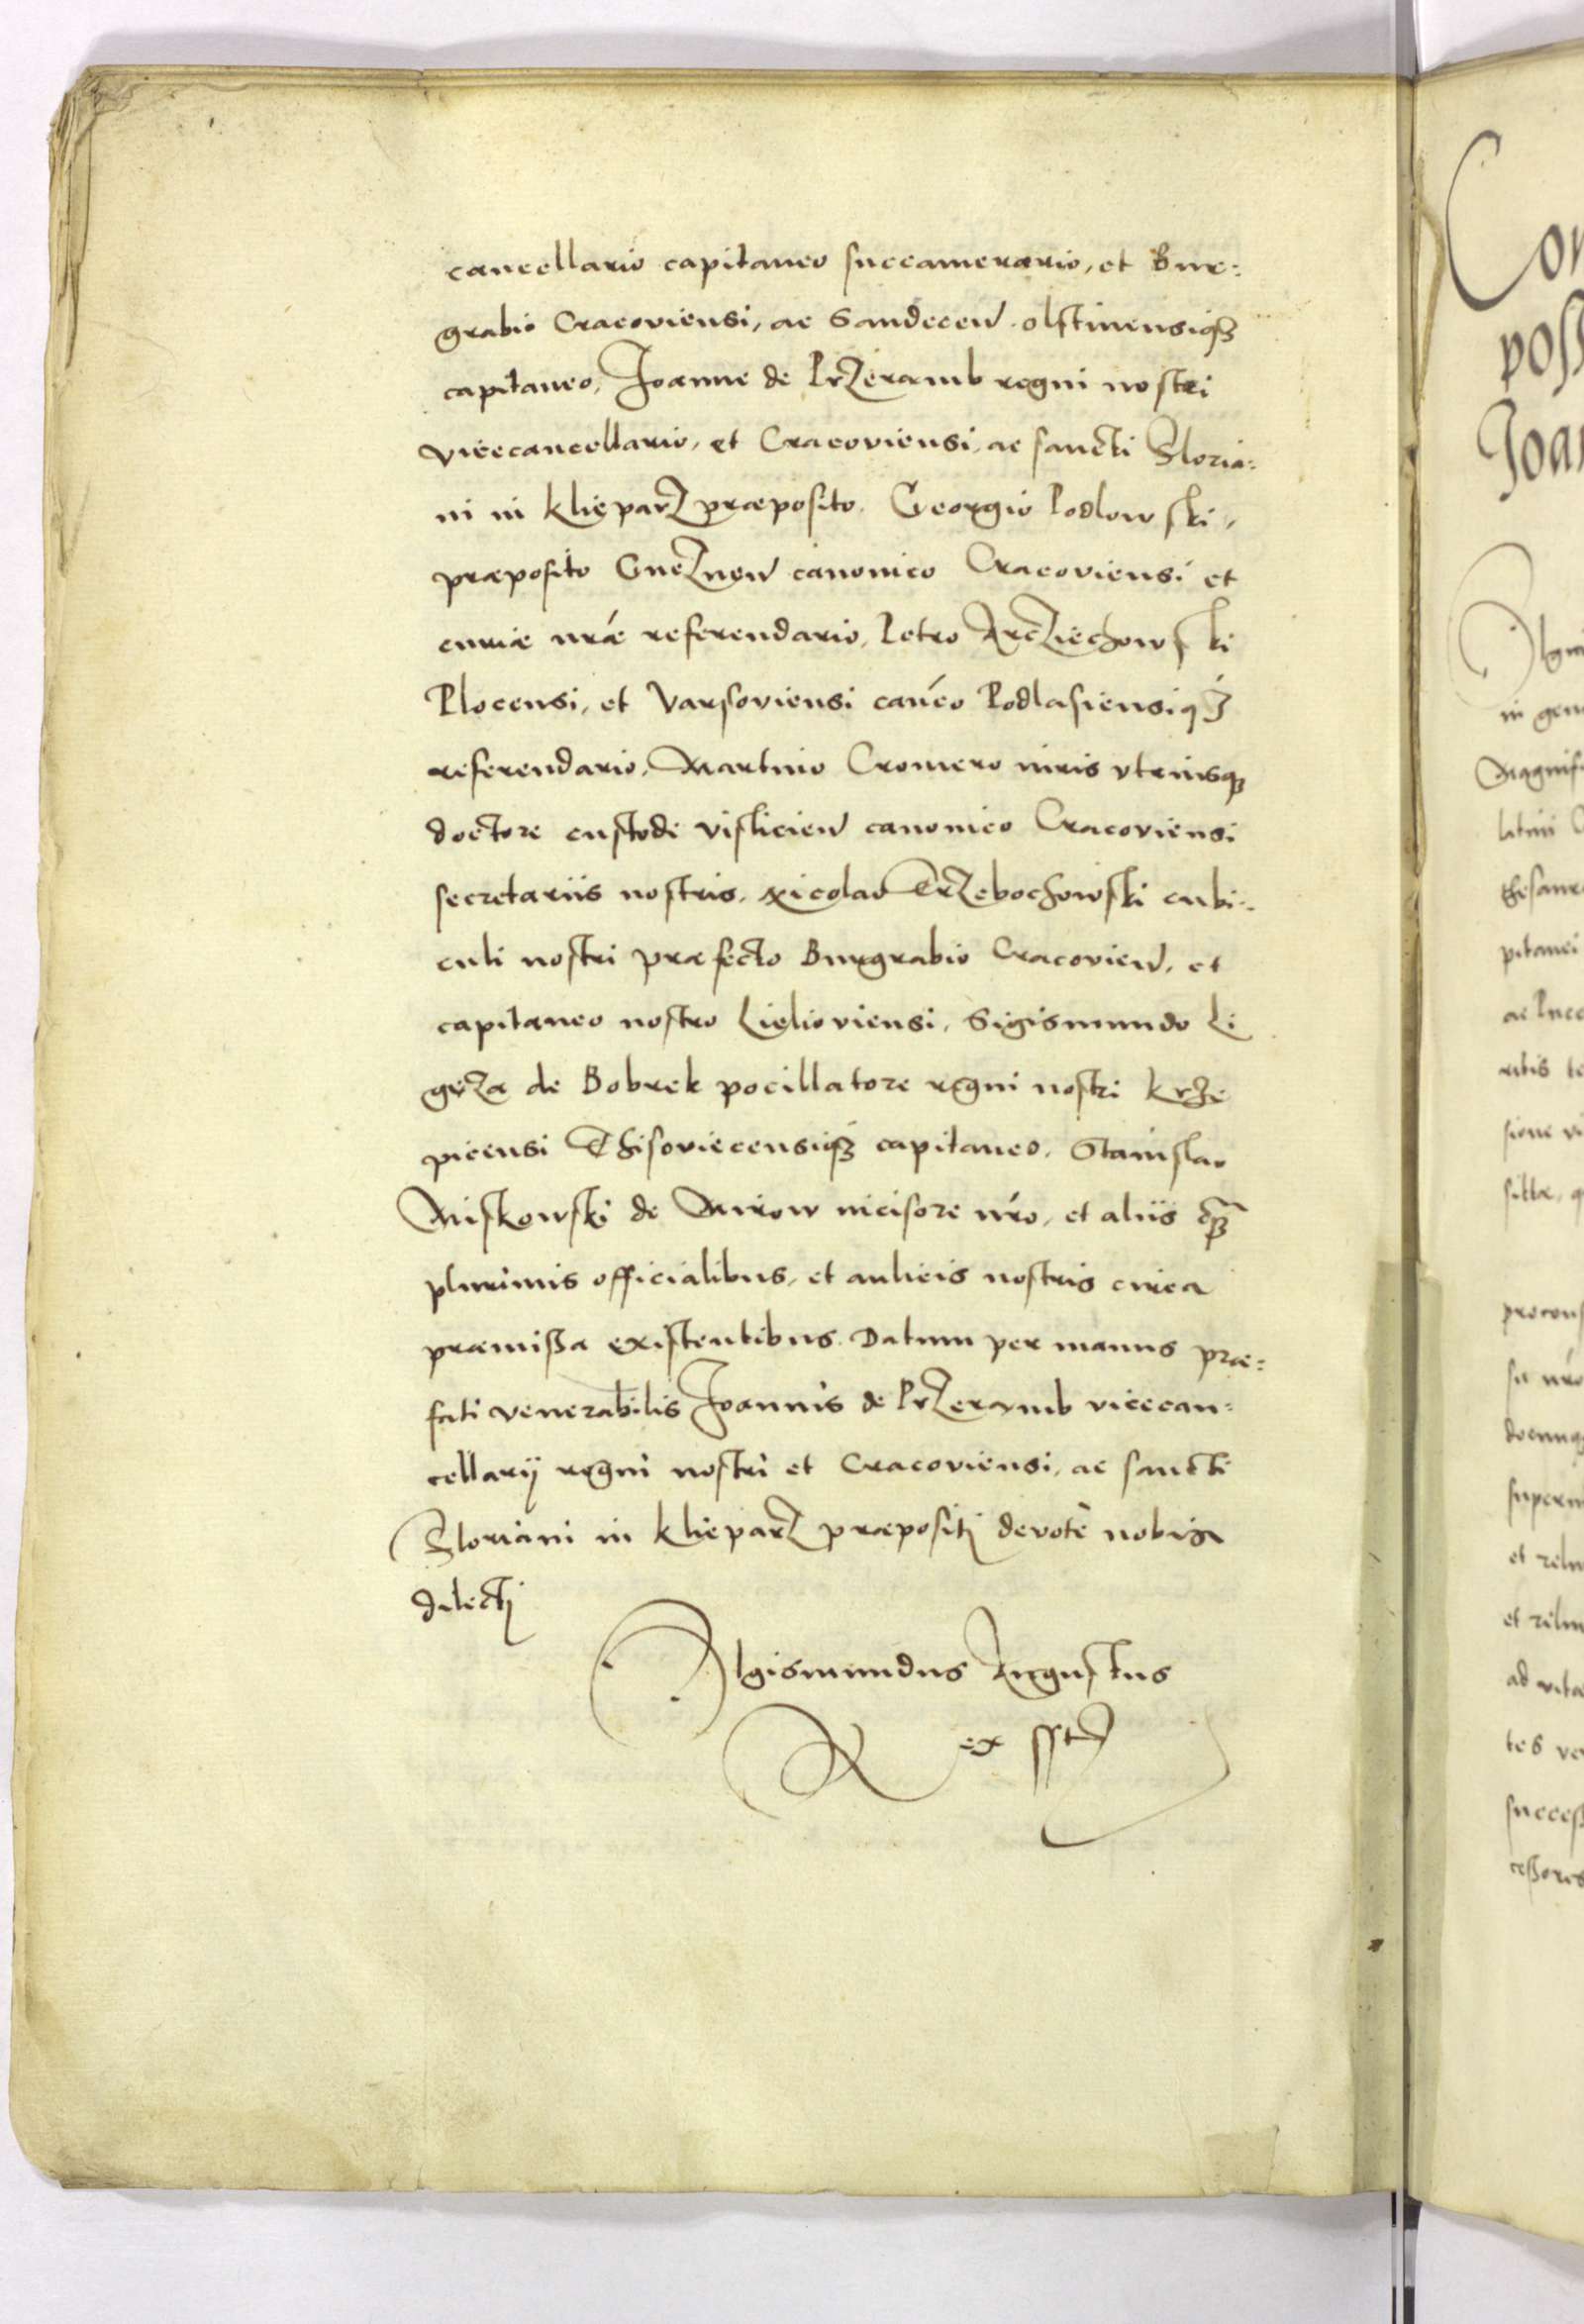 cancellario capitaneo succamerario, et Bur:
grabio Cracoviensi, ac Sandecen olstinensiqꝫ
capitaneo, Joanne de Przeramb regni nostri
vicecancellario, et Cracoviensi, ac sancti Floria:
ni in klieparz præposito. Georgio Podlowski,
præposito Gneznen canonico Cracoviensi et
curiæ nræ referendario, Petro Arcziechowski
Plocensi, et Varsoviensi canco Podlasiensiqꝫ
referendario, Martino Cromero iuris vtriusqꝫ
doctore custode vislicien canonico Cracoviensi
secretariis nostris. Nicolao Trzebochowski cubi:
culi nostri præfecto Burgrabio Cracovien, et
capitaneo nostro Lielioviensi, Sigismundo Li
gęza de Bobrek pocillatore regni nostri krze
picensi Thisoviecensiqꝫ capitaneo. Stanislao
Miskowski de Mirow incisore nro, et aliis qꝫ
plurimis officialibus, et aulicis nostris circa
præmissa existentibus. Datum per manus præ:
fati venerabilis Joannis de Przeramb vicecan:
cellarij regni nostri et Cracoviensi, ac sancti
Floriani in klieparz præpositi devote nobis
dilecti
Sigismundus Augustus
Rex sst
Con
poss
Joan
in gen
Magnif
latini
thesaur
pitanei